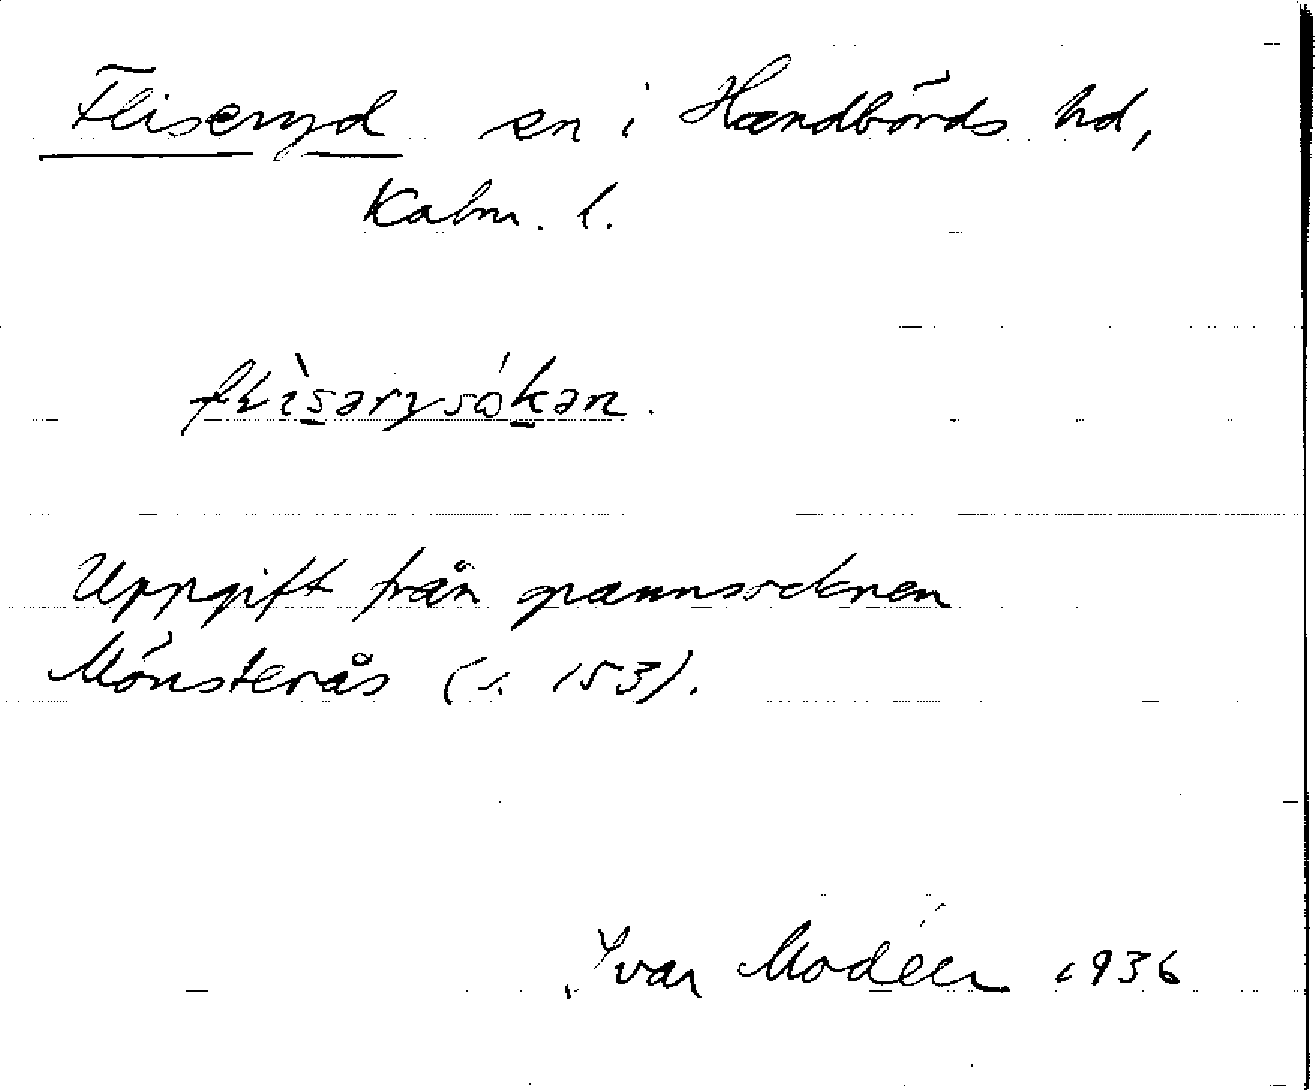 Fliseryd sn i Handbörds hd,
Kalm. l.
flìsarysókan.
Uppgift från grannsocknen
Mönsterås (s. 153).
Ivar Modéer 1936